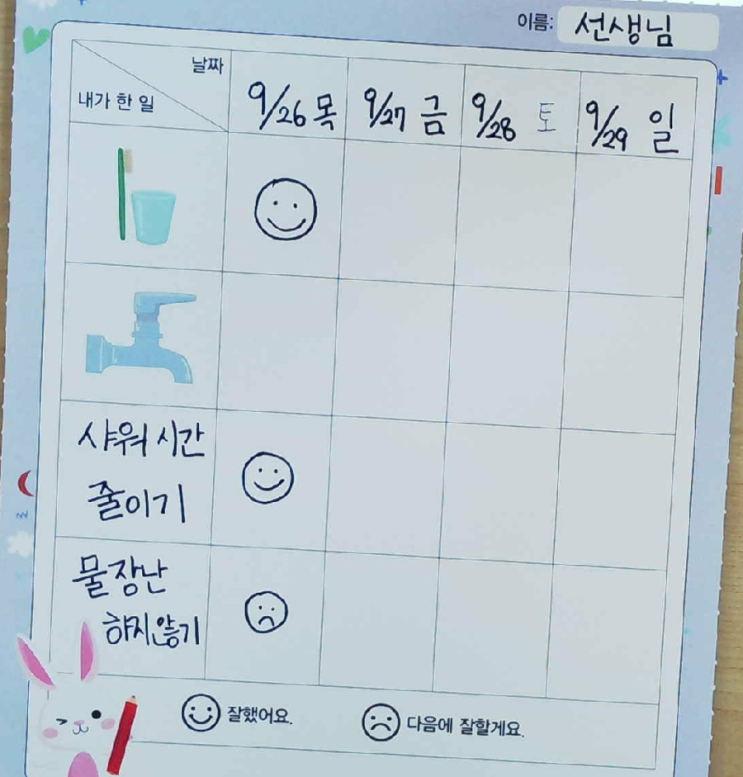 이름: 선생님
날짜
내가 한 일
9/26 목 9/27 금 9/28 토 9/29 일
샤워 시간
줄이기
물장난
하지않기
잘했어요. 다음에 잘할게요.